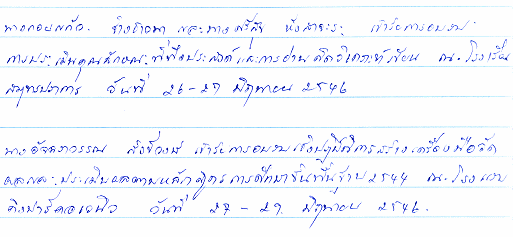 นางกอบแก้ว และนาง เข้ารับการอบรม
การประเมินคุณลักษณะที่พึงประสงค์และการอ่านคิดวิเคราะห์เขียน ณ. โรงเรียน
สมุทรปราการ วันที่ 26-27 มิถุนายน 2546
นางอัจฉราวรรณ เข้ารับการอบรมเชิงปฏิบัติการสร้างเครื่องมือวัด
ผลและประเมินผลตามหลักสูตรการศึกษาขั้นพื้นฐาน 2544 ณ. โรงแรม
วันที่ 27 - 29 มิถุนายน 2546.